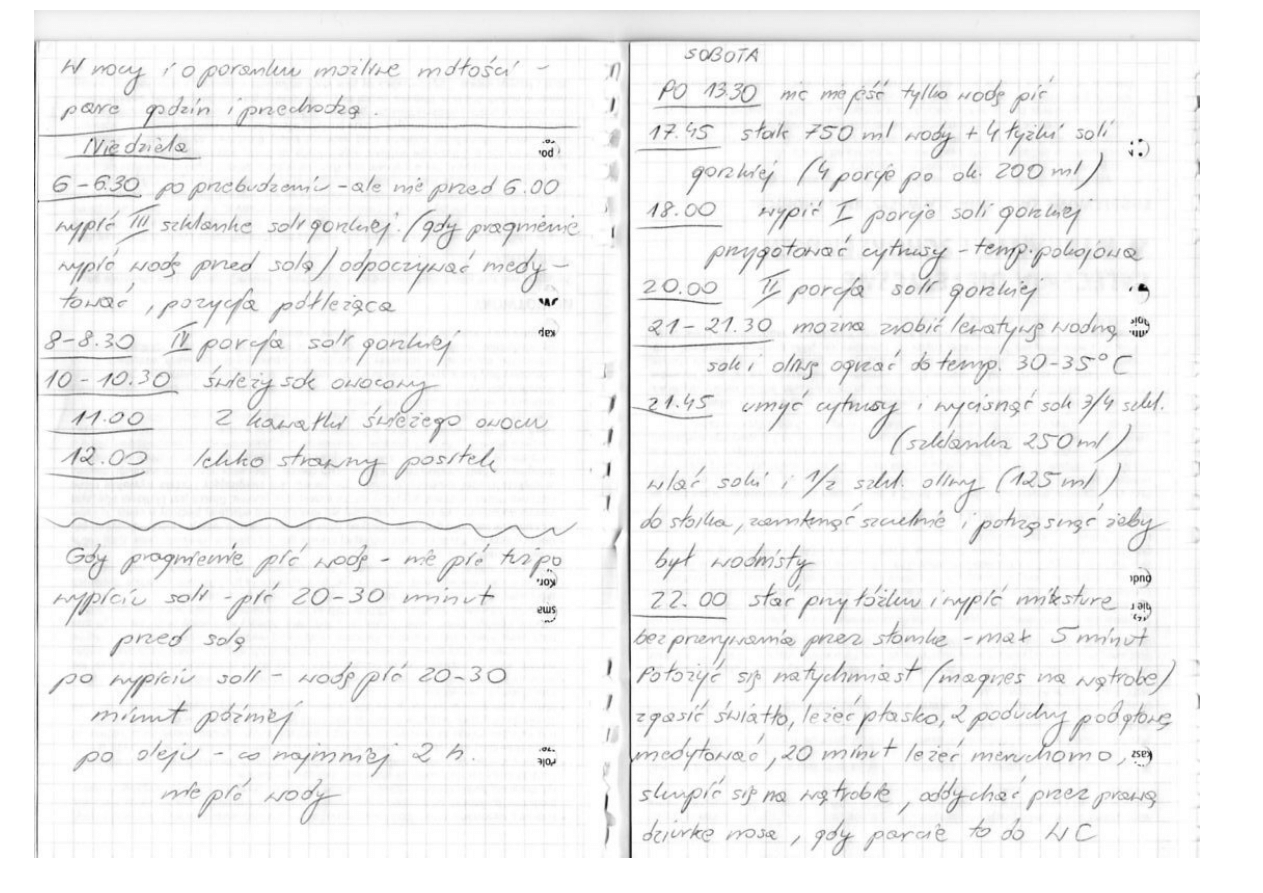 W nocy i o poranku możliwe mdłości -
parę godzin i przechodzą.
Niedziela
6-6.30 po przebudzeniu - ale nie przed 6.00
wypić III szklankę soli gorzkiej. (gdy pragnienie
wypić wodę przed solą) odpoczywać medy-
tować, pozycja półleżąca
8-8.30 IV porcja soli gorzkiej
10-10.30 świeży sok owocowy
11.00 2 kawałki świeżego owocu
12.00 lekko strawny posiłek
Gdy pragnienie pić wodę - nie pić tuż po
wypiciu soli - pić 20-30 minut
przed solą
po wypiciu soli - wodę pić 20-30
minut później
po oleju - co najmniej 2 h.
nie pić wody
SOBOTA
PO 13.30 nic nie jeść tylko wodę pić
17.45 słoik 750 ml wody + 4 łyżki soli
gorzkiej (4 porcje po ok. 200 ml)
18.00 wypić I porcję soli gorzkiej
przygotować cytrusy - temp. pokojowa
20.00 II porcja soli gorzkiej
21-21.30 można zrobić lewatywę wodną
sok i oliwę ogrzać do temp. 30-35°C
21.45 umyć cytrusy i wycisnąć sok 3/4 szkl.
(szklanka 250 ml)
wlać soki i 1/2 szkl. oliwy (125 ml)
do słoika, zamknąć szczelnie i potrząsnąć żeby
był wodnisty
22.00 stać przy łóżku i wypić miksturę
bez przerywania przez słomkę - max 5 minut
Położyć się natychmiast (magnes na wątrobę)
zgasić światło, leżeć płasko, 2 poduchy pod głowę
medytować, 20 minut leżeć nieruchomo,
skupić się na wątrobie, oddychać przez prawą
dziurkę nosa, gdy parcie to do WC